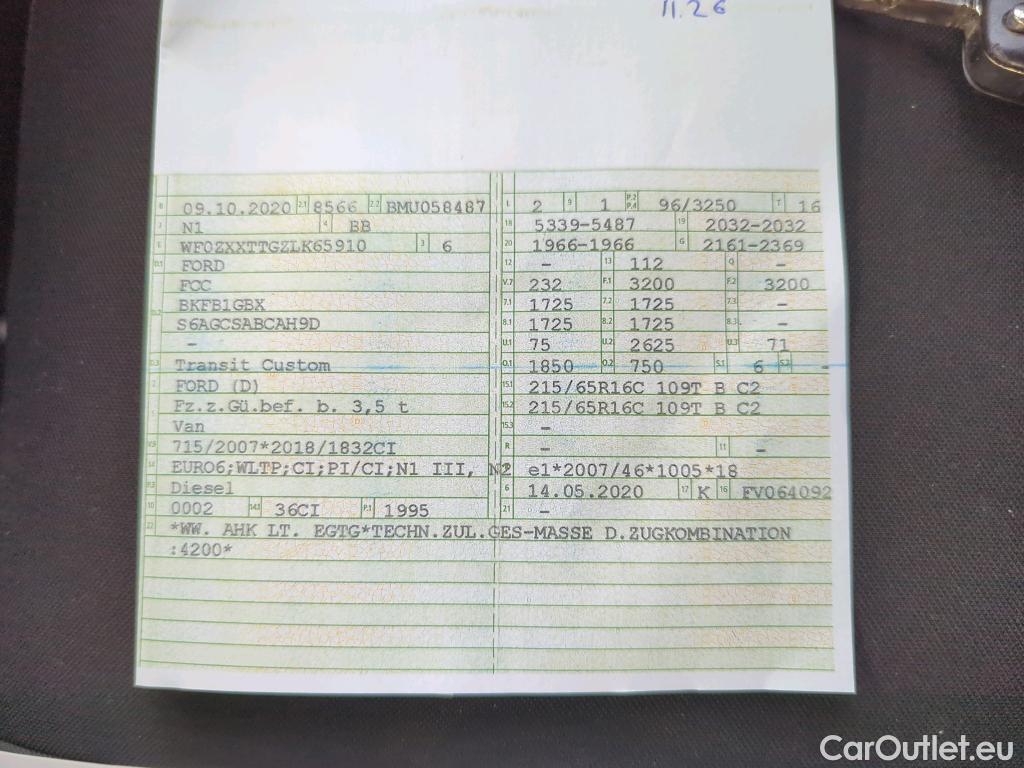 11.26
B 09.10.2020 2.1 8566 2.2 BMU058487 L 2 9 1 P.2 P.4 96/3250 T 16
J N1 4 BB 18 5339-5487 19 2032-2032
E WF0ZXXTTGZLK65910 3 6 20 1966-1966 G 2161-2369
D.1 FORD 12 - 13 112 Q -
FCC V.7 232 F.1 3200 F.2 3200
D.2 BKFB1GBX 7.1 1725 7.2 1725 7.3 -
S6AGCSABCAH9D 8.1 1725 8.2 1725 8.3 -
- U.1 75 U.2 2625 U.3 71
D.3 Transit Custom O.1 1850 O.2 750 S.1 6 S.2 -
2 FORD (D) 15.1 215/65R16C 109T B C2
5 Fz.z.Gü.bef. b. 3,5 t 15.2 215/65R16C 109T B C2
Van 15.3 -
V.9 715/2007*2018/1832CI R - 11 -
14 EURO6;WLTP;CI;PI/CI;N1 III, N2 e1*2007/46*1005*18
P.3 Diesel 6 14.05.2020 17 K 16 FV064092
10 0002 14.1 36CI P.1 1995 21 -
22 *WW. AHK LT. EGTG*TECHN.ZUL.GES-MASSE D.ZUGKOMBINATION
:4200*
CarOutlet.eu